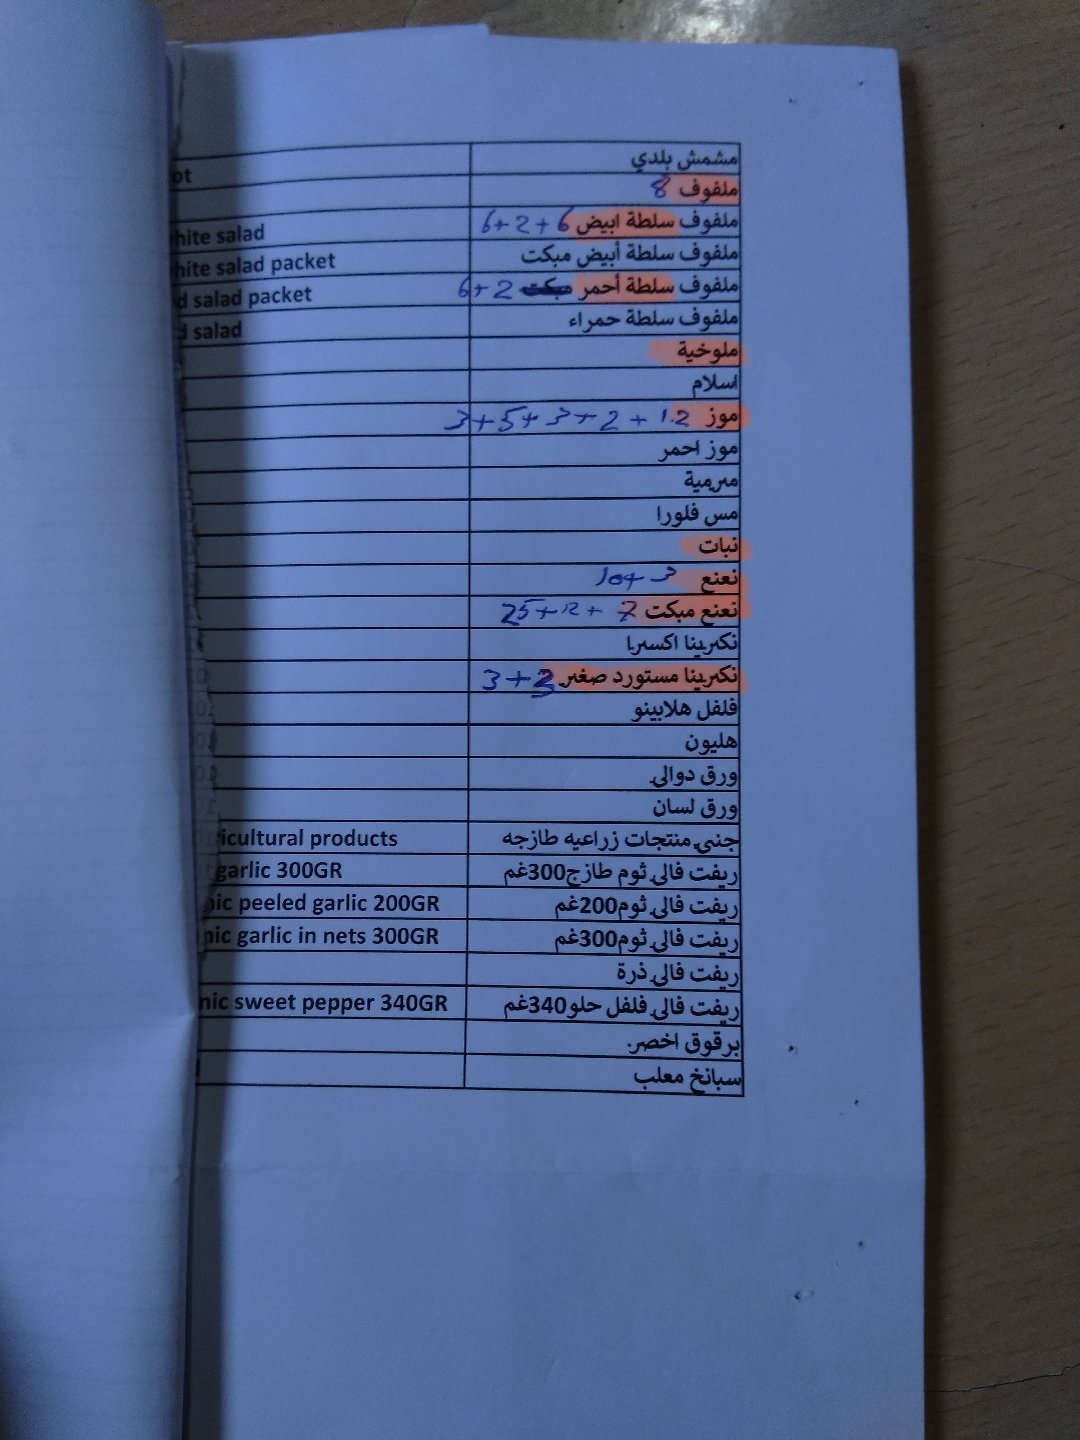 مشمش بلدي
ملفوف 8
ملفوف سلطة ابيض 6+2+6
hite salad
ملفوف سلطة أبيض مبكت
hite salad packet
ملفوف سلطة أحمر مبكت 6+2
d salad packet
ملفوف سلطة حمراء
d salad
ملوخية
اسلام
موز 3+5+3+2+1.2
موز احمر
مىرمية
مس فلورا
نبات
نعنع 10+3
نعنع مبكت 25+12+7
نكىرينا اكسىرا
نكىرينا مستورد صغىر 3+3
فلفل هلابينو
هليون
ورق دوالي
ورق لسان
جني منتجات زراعيه طازجه
ricultural products
ريفت فالي ثوم طازج300غم
garlic 300GR
ريفت فالي ثوم200غم
nic peeled garlic 200GR
ريفت فالي ثوم300غم
nic garlic in nets 300GR
ريفت فالي ذرة
ريفت فالي فلفل حلو340غم
nic sweet pepper 340GR
برقوق اخصر
سبانخ معلب